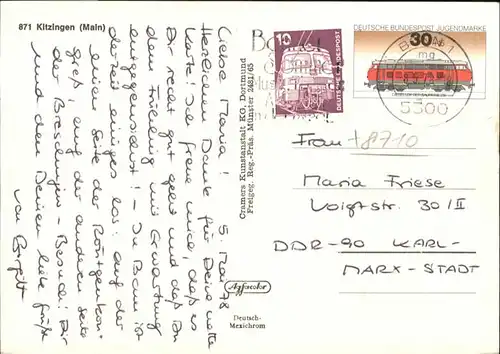 871 Kitzingen (Main)
5. Mai 78
Liebe Maria!
Herzlichen Dank für Deine nette
Karte! Ich freue mich, daß es
Dir recht gut geht und daß Du
dem Frühling mit Erwartung
entgegensiehst! - In Bonn ist
derzeit einiges los: auf der
einen Seite der Röntgenkon-
greß auf der anderen Seite
der Breschnjew - Besuch. Dir
und den Deinen liebe Grüße
von Birgitt
Cramers Kunstanstalt KG, Dortmund
Freigeg. Reg.-Präs. Münster 2481/65
Agfacolor
Deutsch-
Mexichrom
10
DEUTSCHE BUNDESPOST
DEUTSCHE BUNDESPOST JUGENDMARKE
30
BONN 1
5300
Frau +8710
Maria Friese
Voigtstr. 30/II
DDR-90 KARL-
MARX-STADT